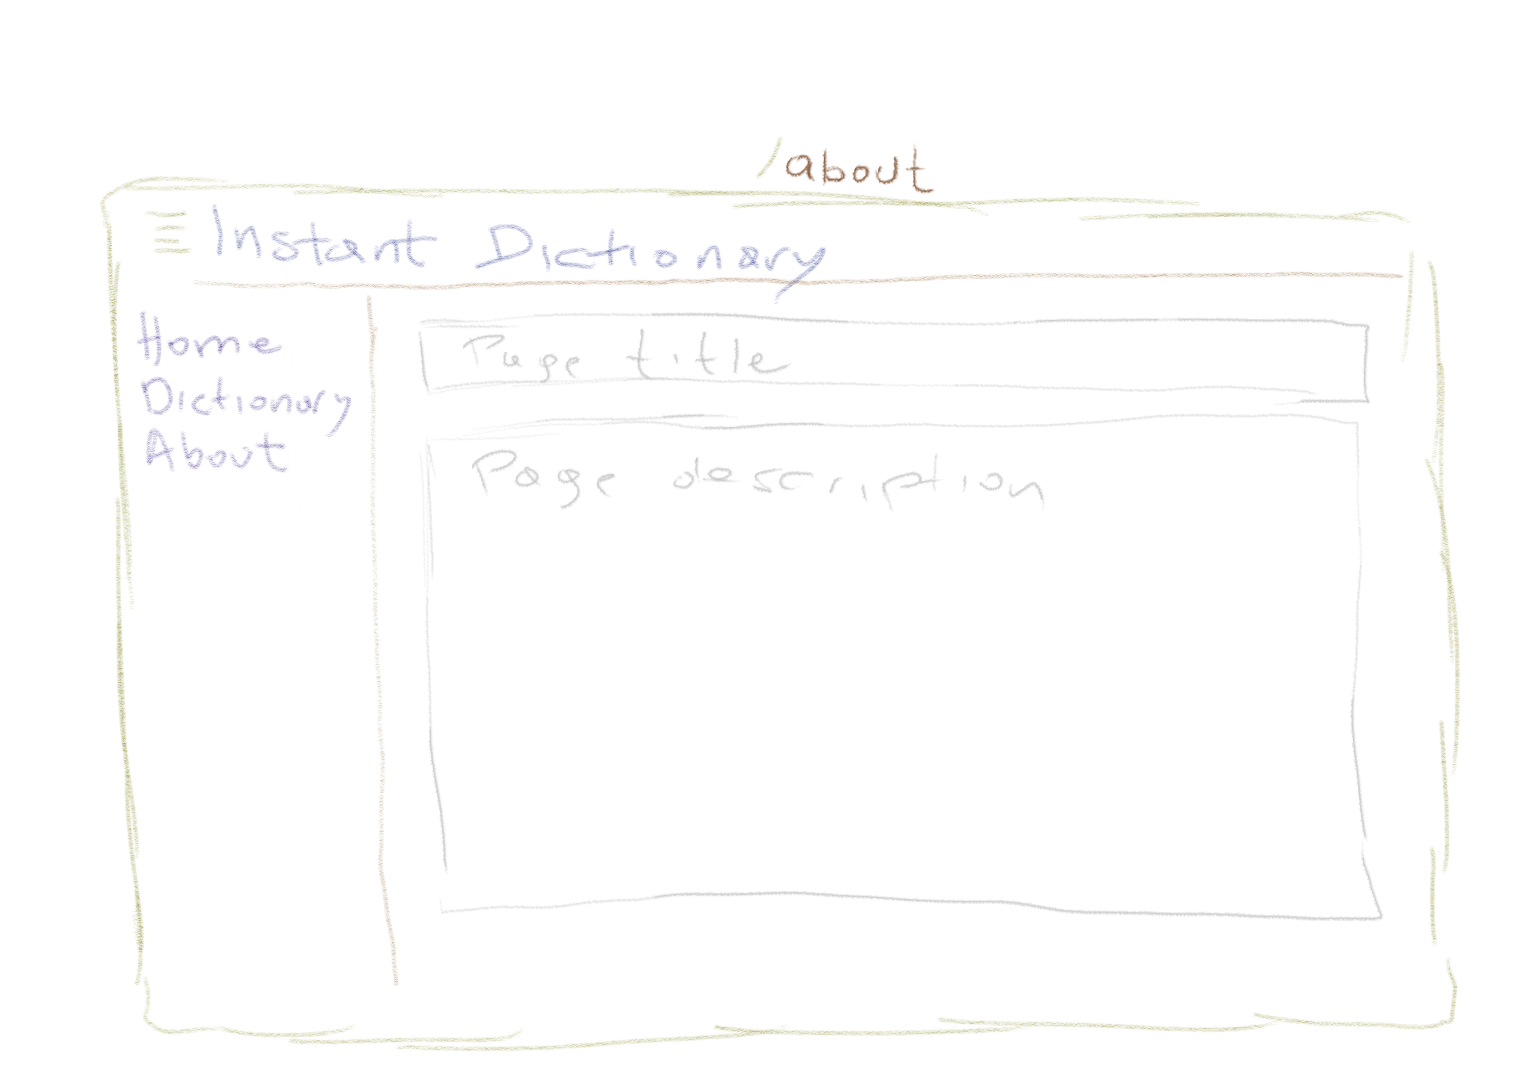 /about
Instant Dictionary
Home
Dictionary
About
Page title
Page description